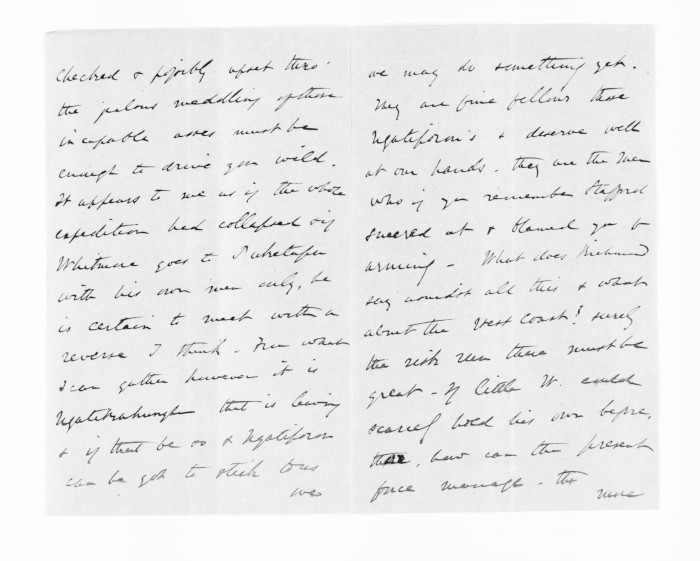 checked & possibly upset thro'
the jealous meddling of those
incapable asses must be
enough to drive you wild.
It appears to me as if the whole
expedition had collapsed & if
Whitmore goes to Puketapu
with his own men only, he
is certain to meet with a
reverse I think. From what
I can gather however it is
Ngatikahungunu that is leaving
& if that be so & Ngatiporou
can be got to stick to us
we
we may do something yet.
They are fine fellows those
Ngatiporou's & deserve well
at our hands. They are the men
who if you remember Stafford
sneered at & blamed you for
arming - What does Richmond
say amidst all this & what
about the West Coast? Surely
the risk run there must be
great - If Little W. could
scarcely hold his own before,
how can the present
force manage - The
more